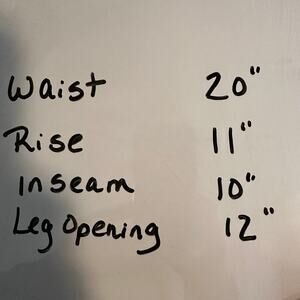 Waist 20"
Rise 11"
inseam 10"
Leg Opening 12"